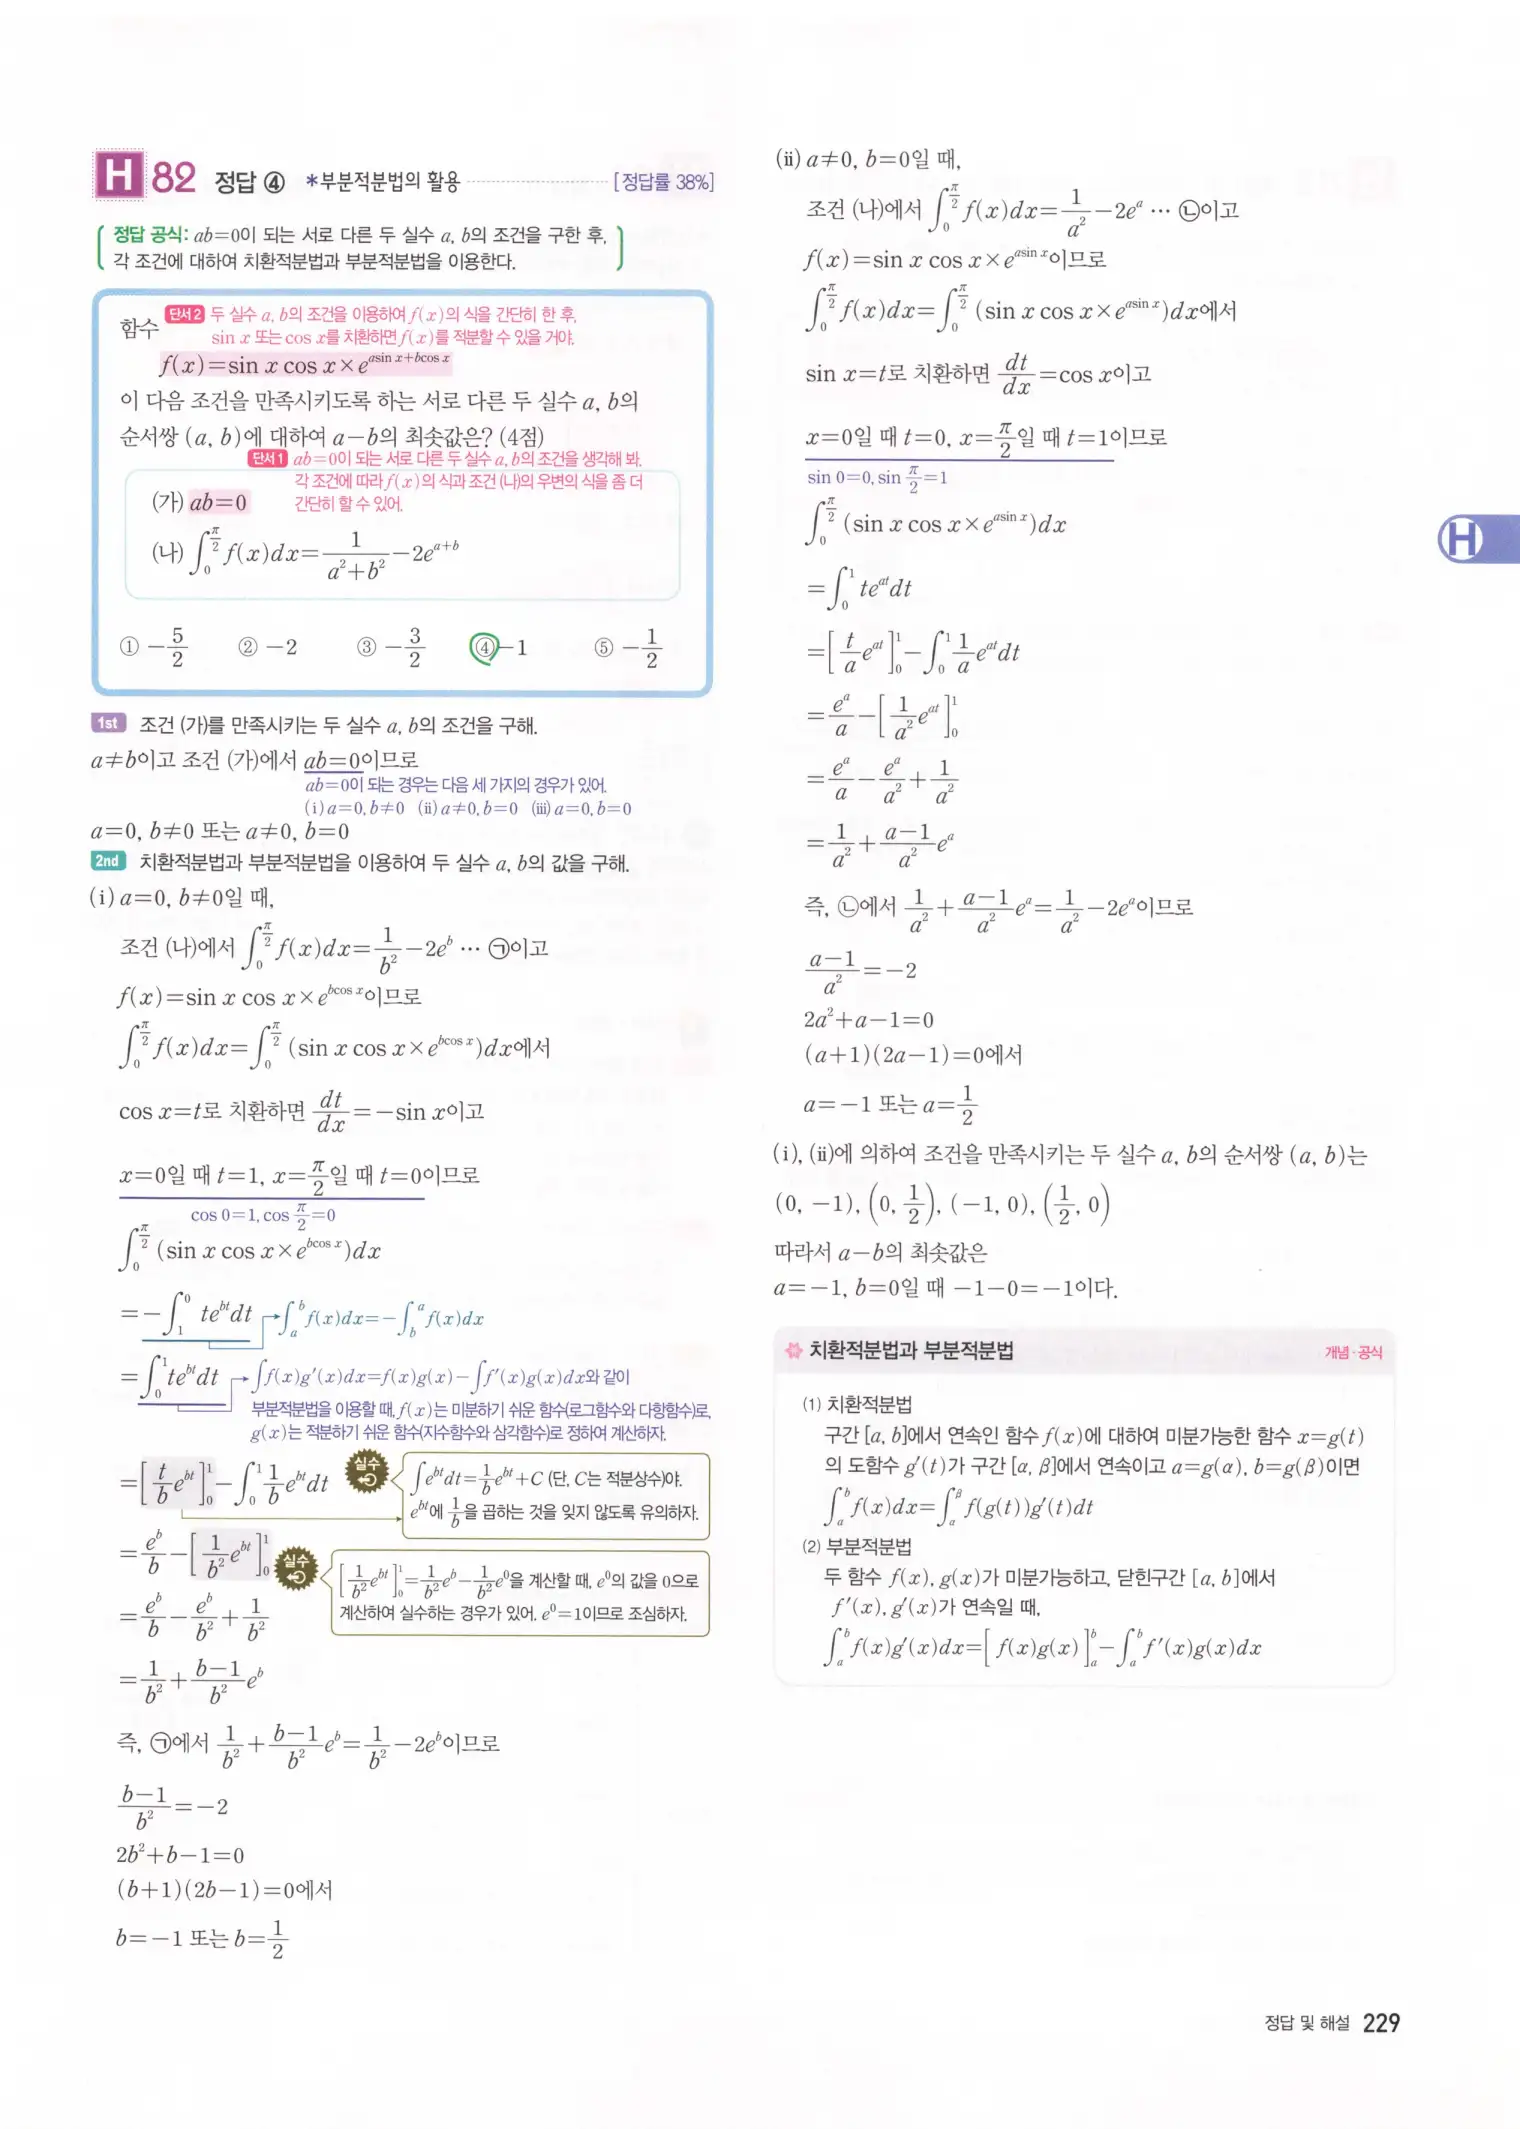 H 82 정답 ④ *부분적분법의 활용 [정답률 38%]
정답 공식: ab=0이 되는 서로 다른 두 실수 a, b의 조건을 구한 후,
각 조건에 대하여 치환적분법과 부분적분법을 이용한다.
함수 단서2 두 실수 a, b의 조건을 이용하여 f(x)의 식을 간단히 한 후,
sin x 또는 cos x를 치환하면 f(x)를 적분할 수 있을 거야.
f(x)=sin x cos x×e^{asin x+bcos x}
이 다음 조건을 만족시키도록 하는 서로 다른 두 실수 a, b의
순서쌍 (a, b)에 대하여 a-b의 최솟값은? (4점)
단서1 ab=0이 되는 서로 다른 두 실수 a, b의 조건을 생각해 봐.
각 조건에 따라 f(x)의 식과 조건 (나)의 우변의 식을 좀 더
(가) ab=0 간단히 할 수 있어.
(나) ∫_0^{π/2} f(x)dx=1/(a²+b²)-2e^{a+b}
① -5/2 ② -2 ③ -3/2 ④ -1 ⑤ -1/2
1st 조건 (가)를 만족시키는 두 실수 a, b의 조건을 구해.
a≠b이고 조건 (가)에서 ab=0이므로
ab=0이 되는 경우는 다음 세 가지의 경우가 있어.
(i) a=0, b≠0 (ii) a≠0, b=0 (iii) a=0, b=0
a=0, b≠0 또는 a≠0, b=0
2nd 치환적분법과 부분적분법을 이용하여 두 실수 a, b의 값을 구해.
(i) a=0, b≠0일 때,
조건 (나)에서 ∫_0^{π/2} f(x)dx=1/b²-2e^b … ㉠이고
f(x)=sin x cos x×e^{bcos x}이므로
∫_0^{π/2} f(x)dx=∫_0^{π/2} (sin x cos x×e^{bcos x})dx에서
cos x=t로 치환하면 dt/dx=-sin x이고
x=0일 때 t=1, x=π/2일 때 t=0이므로
cos 0=1, cos π/2=0
∫_0^{π/2} (sin x cos x×e^{bcos x})dx
=-∫_1^0 te^{bt}dt ∫_a^b f(x)dx=-∫_b^a f(x)dx
=∫_0^1 te^{bt}dt ∫f(x)g'(x)dx=f(x)g(x)-∫f'(x)g(x)dx와 같이
부분적분법을 이용할 때, f(x)는 미분하기 쉬운 함수(로그함수와 다항함수)로,
g(x)는 적분하기 쉬운 함수(지수함수와 삼각함수)로 정하여 계산하자.
=[t/b e^{bt}]_0^1-∫_0^1 1/b e^{bt}dt 실수 ∫e^{bt}dt=1/b e^{bt}+C (단, C는 적분상수)야.
e^{bt}에 1/b을 곱하는 것을 잊지 않도록 유의하자.
=e^b/b-[1/b² e^{bt}]_0^1 실수 [1/b² e^{bt}]_0^1=1/b² e^b-1/b² e^0을 계산할 때, e^0의 값을 0으로
계산하여 실수하는 경우가 있어. e^0=1이므로 조심하자.
=e^b/b-e^b/b²+1/b²
=1/b²+(b-1)/b² e^b
즉, ㉠에서 1/b²+(b-1)/b² e^b=1/b²-2e^b이므로
(b-1)/b²=-2
2b²+b-1=0
(b+1)(2b-1)=0에서
b=-1 또는 b=1/2
(ii) a≠0, b=0일 때,
조건 (나)에서 ∫_0^{π/2} f(x)dx=1/a²-2e^a … ㉡이고
f(x)=sin x cos x×e^{asin x}이므로
∫_0^{π/2} f(x)dx=∫_0^{π/2} (sin x cos x×e^{asin x})dx에서
sin x=t로 치환하면 dt/dx=cos x이고
x=0일 때 t=0, x=π/2일 때 t=1이므로
sin 0=0, sin π/2=1
∫_0^{π/2} (sin x cos x×e^{asin x})dx
=∫_0^1 te^{at}dt
=[t/a e^{at}]_0^1-∫_0^1 1/a e^{at}dt
=e^a/a-[1/a² e^{at}]_0^1
=e^a/a-e^a/a²+1/a²
=1/a²+(a-1)/a² e^a
즉, ㉡에서 1/a²+(a-1)/a² e^a=1/a²-2e^a이므로
(a-1)/a²=-2
2a²+a-1=0
(a+1)(2a-1)=0에서
a=-1 또는 a=1/2
(i), (ii)에 의하여 조건을 만족시키는 두 실수 a, b의 순서쌍 (a, b)는
(0, -1), (0, 1/2), (-1, 0), (1/2, 0)
따라서 a-b의 최솟값은
a=-1, b=0일 때 -1-0=-1이다.
치환적분법과 부분적분법 개념·공식
(1) 치환적분법
구간 [a, b]에서 연속인 함수 f(x)에 대하여 미분가능한 함수 x=g(t)
의 도함수 g'(t)가 구간 [α, β]에서 연속이고 a=g(α), b=g(β)이면
∫_a^b f(x)dx=∫_α^β f(g(t))g'(t)dt
(2) 부분적분법
두 함수 f(x), g(x)가 미분가능하고, 닫힌구간 [a, b]에서
f'(x), g'(x)가 연속일 때,
∫_a^b f(x)g'(x)dx=[f(x)g(x)]_a^b-∫_a^b f'(x)g(x)dx
H
정답 및 해설 229